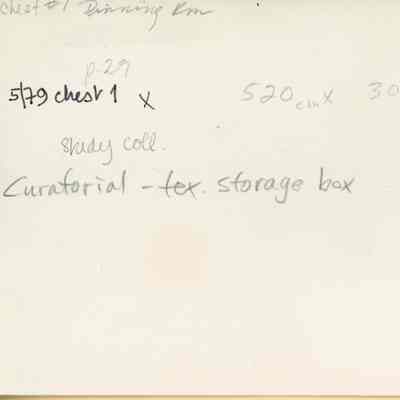 Chest #1 Dinning Rm
p. 29
5/79 chest 1 x 520 cm x 30
study coll.
Curatorial - tex. storage box